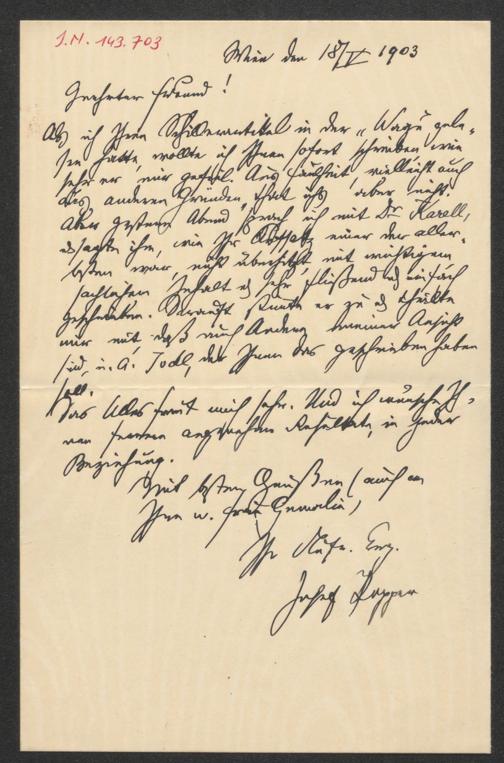 I.N. 143.703
Wien den 18/IV 1903
Geehrter Freund!
Als ich Ihren Schillerartikel in der „Wage" gele-
sen hatte, wollte ich Ihnen sofort schreiben wie
sehr er mir gefiel. Aus Faulheit, vielleicht auch
aus anderen Gründen, that ich's aber nicht.
Aber gestern Abend sprach ich mit Dr. Karell,
u sagte ihm, wie Ihr Aufsatz einer der aller-
besten war, nicht überhitzt, mit wichtigem
sachlichen Inhalt u sehr fließend u einfach
geschrieben. Darauf stimmte er zu u theilte
mir mit, daß auch Andere meiner Ansicht
sind, u. A. Jodl, der Ihnen das geschrieben haben
soll.
Das Alles freut mich sehr. Und ich wünsche Ih-
nen ferner angenehme Resultate, in jeder
Beziehung.
Mit besten Grüßen (auch an
Ihre w. Frau Gemalin,)
Ihr Aufr. Erg.
Josef Popper